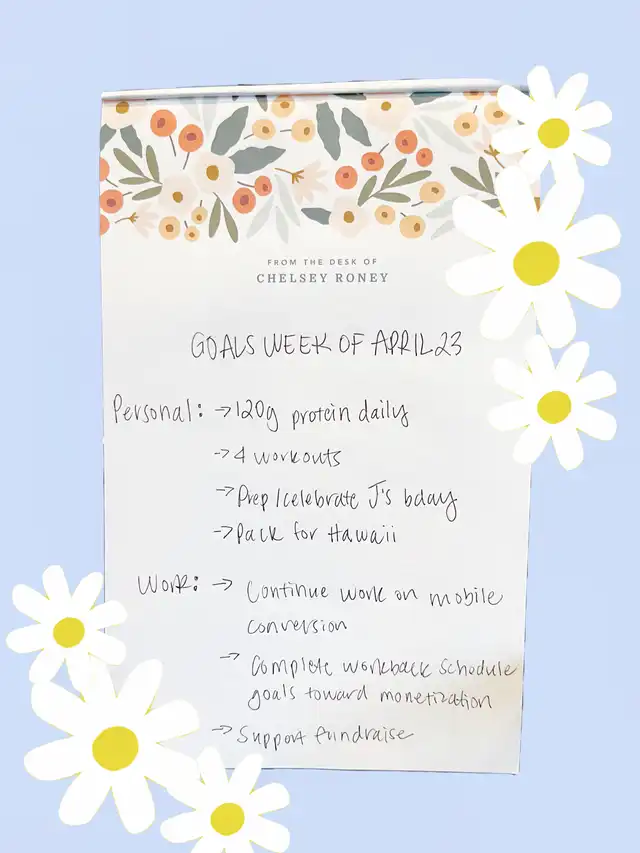 FROM THE DESK OF
CHELSEY RONEY
GOALS WEEK OF APRIL 23
Personal: → 120g protein daily
→ 4 workouts
→ Prep/celebrate J's bday
→ Pack for Hawaii
Work: → Continue work on mobile
conversion
→ Complete workback schedule
goals toward monetization
→ Support fundraise